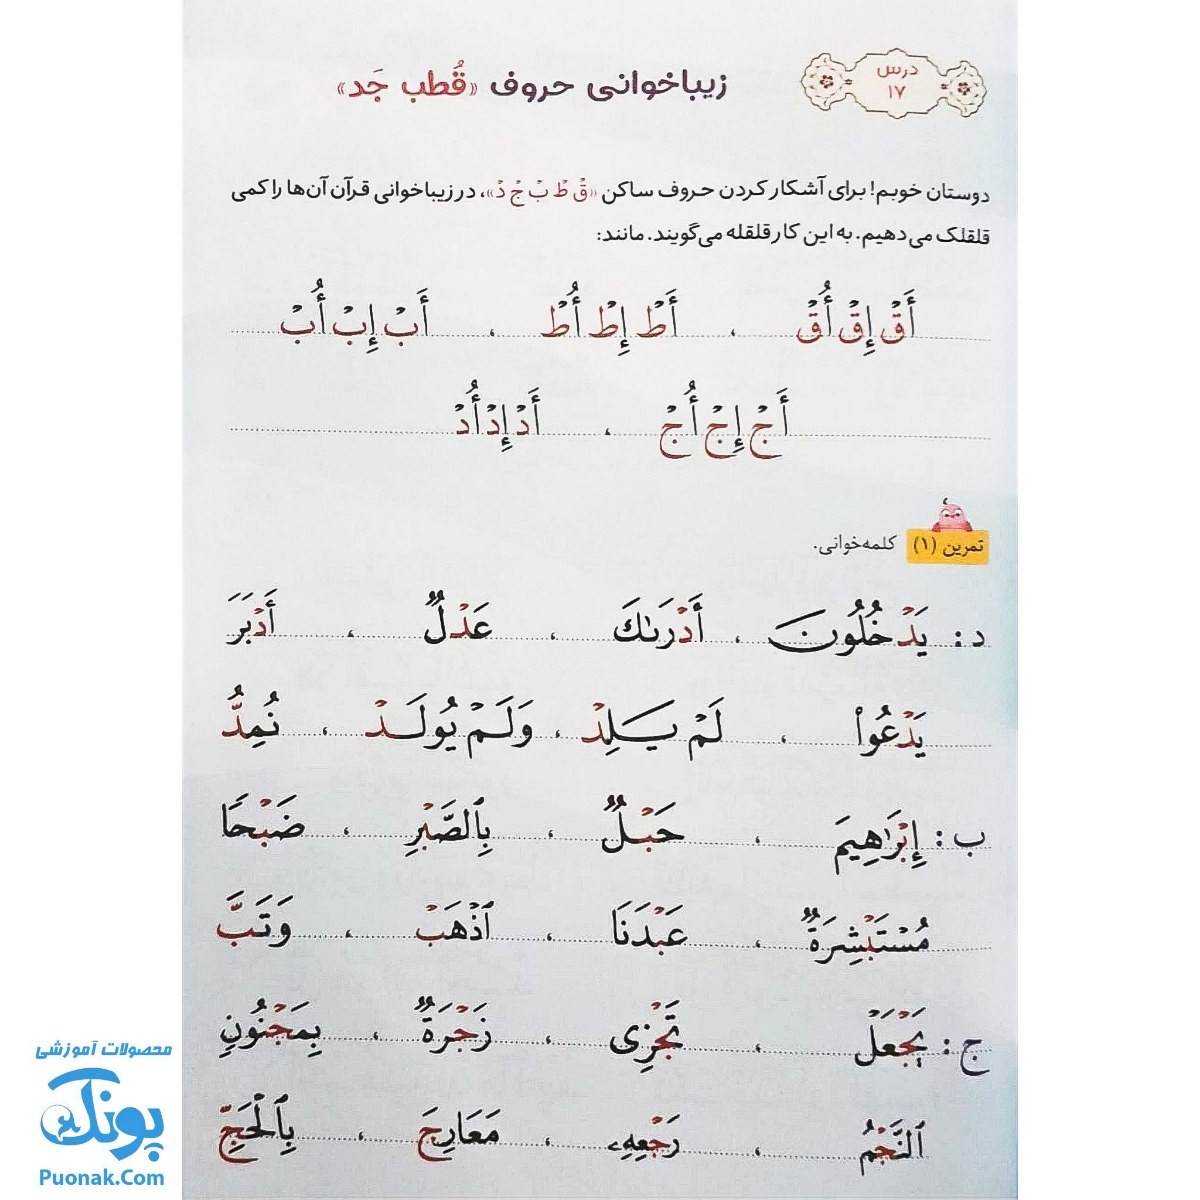 درس
۱۷
زیباخوانی حروف «قُطب جَد»
دوستان خوبم! برای آشکار کردن حروف ساکن «قْ طْ بْ جْ دْ»، در زیباخوانی قرآن آن‌ها را کمی
قلقلک می‌دهیم. به این کار قلقله می‌گویند. مانند:
أَقْ إِقْ أُقْ ، أَطْ إِطْ أُطْ ، أَبْ إِبْ أُبْ
أَجْ إِجْ أُجْ ، أَدْ إِدْ أُدْ
تمرین (۱) کلمه‌خوانی.
د : یَدْخُلُونَ ، أَدْرَىٰكَ ، عَدْلٌ ، أَدْبَرَ
یَدْعُوا۟ ، لَمْ یَلِدْ ، وَلَمْ یُولَدْ ، نُمِدُّ
ب : إِبْرَاهِیمَ ، حَبْلٌ ، بِٱلصَّبْرِ ، ضَبْحًا
مُسْتَبْشِرَةٌ ، عَبْدَنَا ، ٱذْهَبْ ، وَتَبَّ
ج : یَجْعَلْ ، تَجْزِی ، زَجْرَةٌ ، بِمَجْنُونٍ
ٱلنَّجْمُ ، رَجْعِهِۦ ، مَعَارِجَ ، بِٱلْحَجِّ
محصولات آموزشی
پونک
Puonak.Com